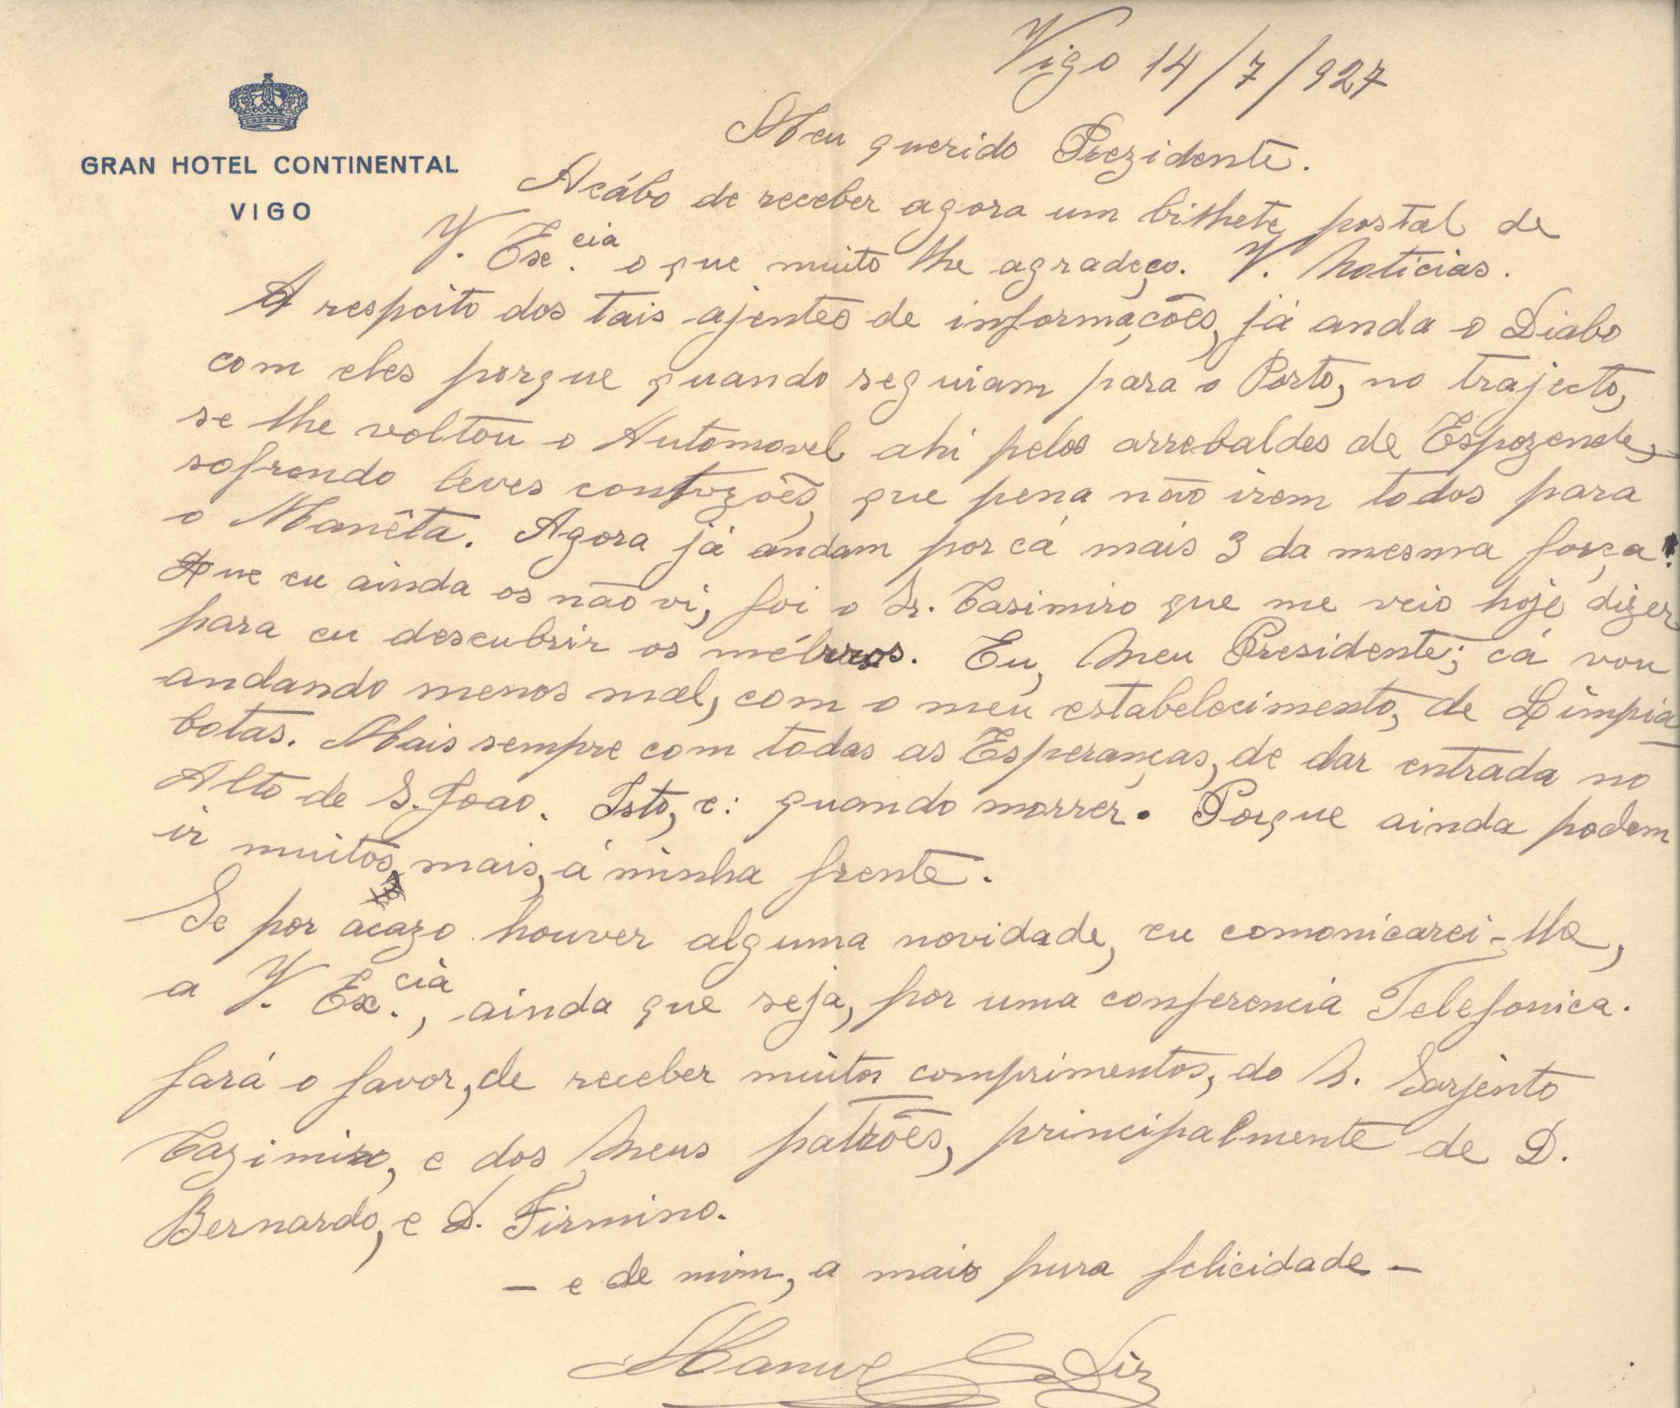 Vigo 14/7/927
GRAN HOTEL CONTINENTAL
VIGO
Meu querido Prezidente.
Acábo de receber agora um bilhete postal de
V. Exc.cia o que muito lhe agradeço. V. Noticias.
A respeito dos tais ajentes de informações, já anda o Diabo
com eles porque quando seguiam para o Porto, no trajecto,
se lhe voltou o Automovel ahi pelos arrebaldes de Espozende,
sofrendo leves contuzões, que pena não irem todos para
o Manêta. Agora já andam por cá mais 3 da mesma força!
Que eu ainda os não vi, foi o Sr. Casimiro que me veio hoje dizer
para eu descubrir os mélrros. Eu, Meu Presidente; cá vou
andando menos mal, com o meu estabelecimento, de Limpia
botas. Mais sempre com todas as Esperanças, de dar entrada no
Alto de S. Joao. Isto, e: quando morrer. Porque ainda podem
ir muitos, mais, á minha frente.
Se por acazo houver alguma novidade, eu comonicarei-lha,
a V. Ex.cia, ainda que seja, por uma conferencia Telefonica.
fará o favor, de receber muitos comprimentos, do S. Sarjento
Cazimiro, e dos Meus patrões, principalmente de D.
Bernardo, e D. Firmino.
- e de mim, a mais pura felicidade -
Manuel